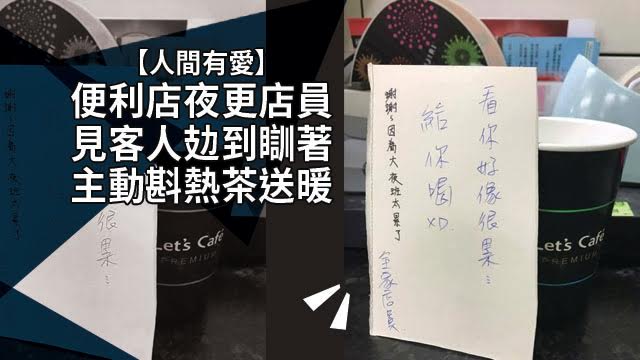 【人間有愛】
便利店夜更店員
見客人攰到瞓著
主動斟熱茶送暖
看你好像很累⋮
給你喝XD.
全家店員.
謝謝~因為大夜班太累了
Let's Café
PREMIUM
很累⋮
Let's Café
PREMIUM
謝謝~因為大夜班太累了